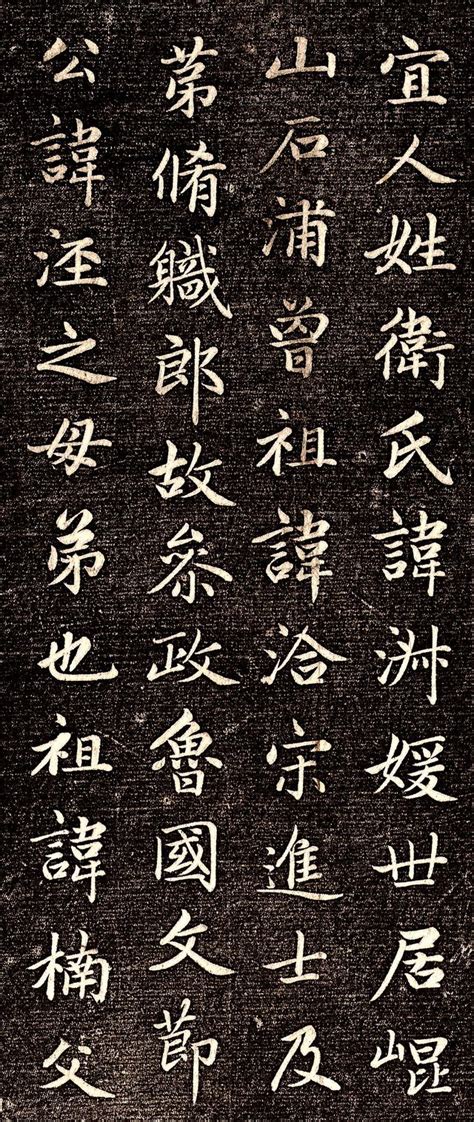 宜人姓衛氏諱淑媛世居崐
山石浦曾祖諱洽宋進士及
苐脩軄郎故叅政魯國文莭
公諱涇之母弟也祖諱楠父